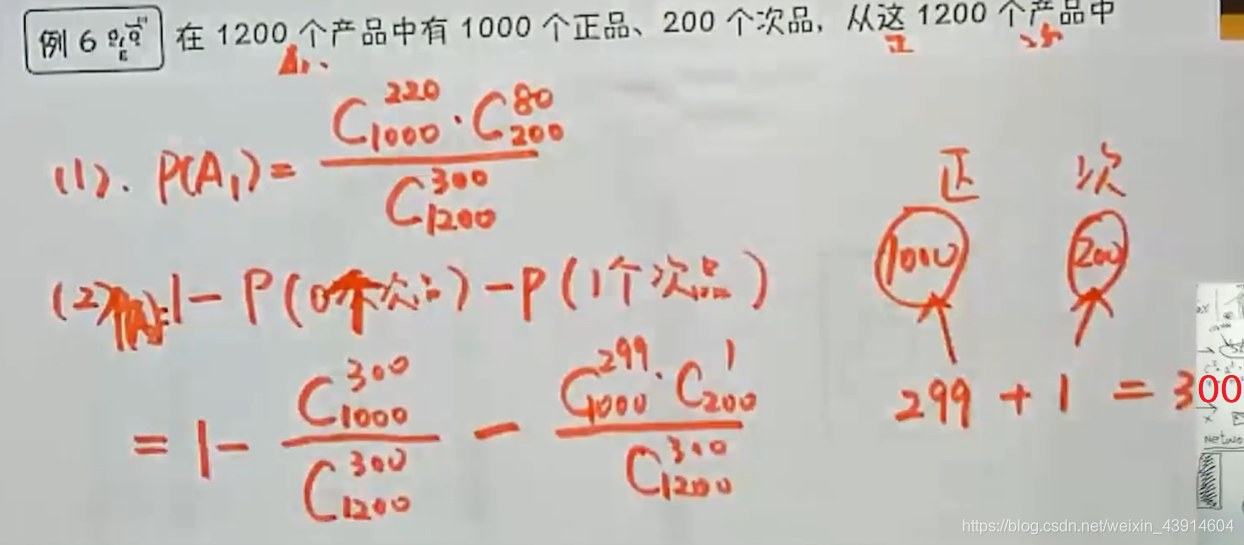 例 6 在 1200 个产品中有 1000 个正品、200 个次品，从这 1200 个产品中
A₁
正
(1). P(A₁) = C₁₀₀₀²²⁰ · C₂₀₀⁸⁰ / C₁₂₀₀³⁰⁰
正 次
1000 200
(2) 1 - P(0个次品) - P(1个次品)
= 1 - C₁₀₀₀³⁰⁰ / C₁₂₀₀³⁰⁰ - C₁₀₀₀²⁹⁹ · C₂₀₀¹ / C₁₂₀₀³⁰⁰
299 + 1 = 300
Netwo
https://blog.csdn.net/weixin_43914604